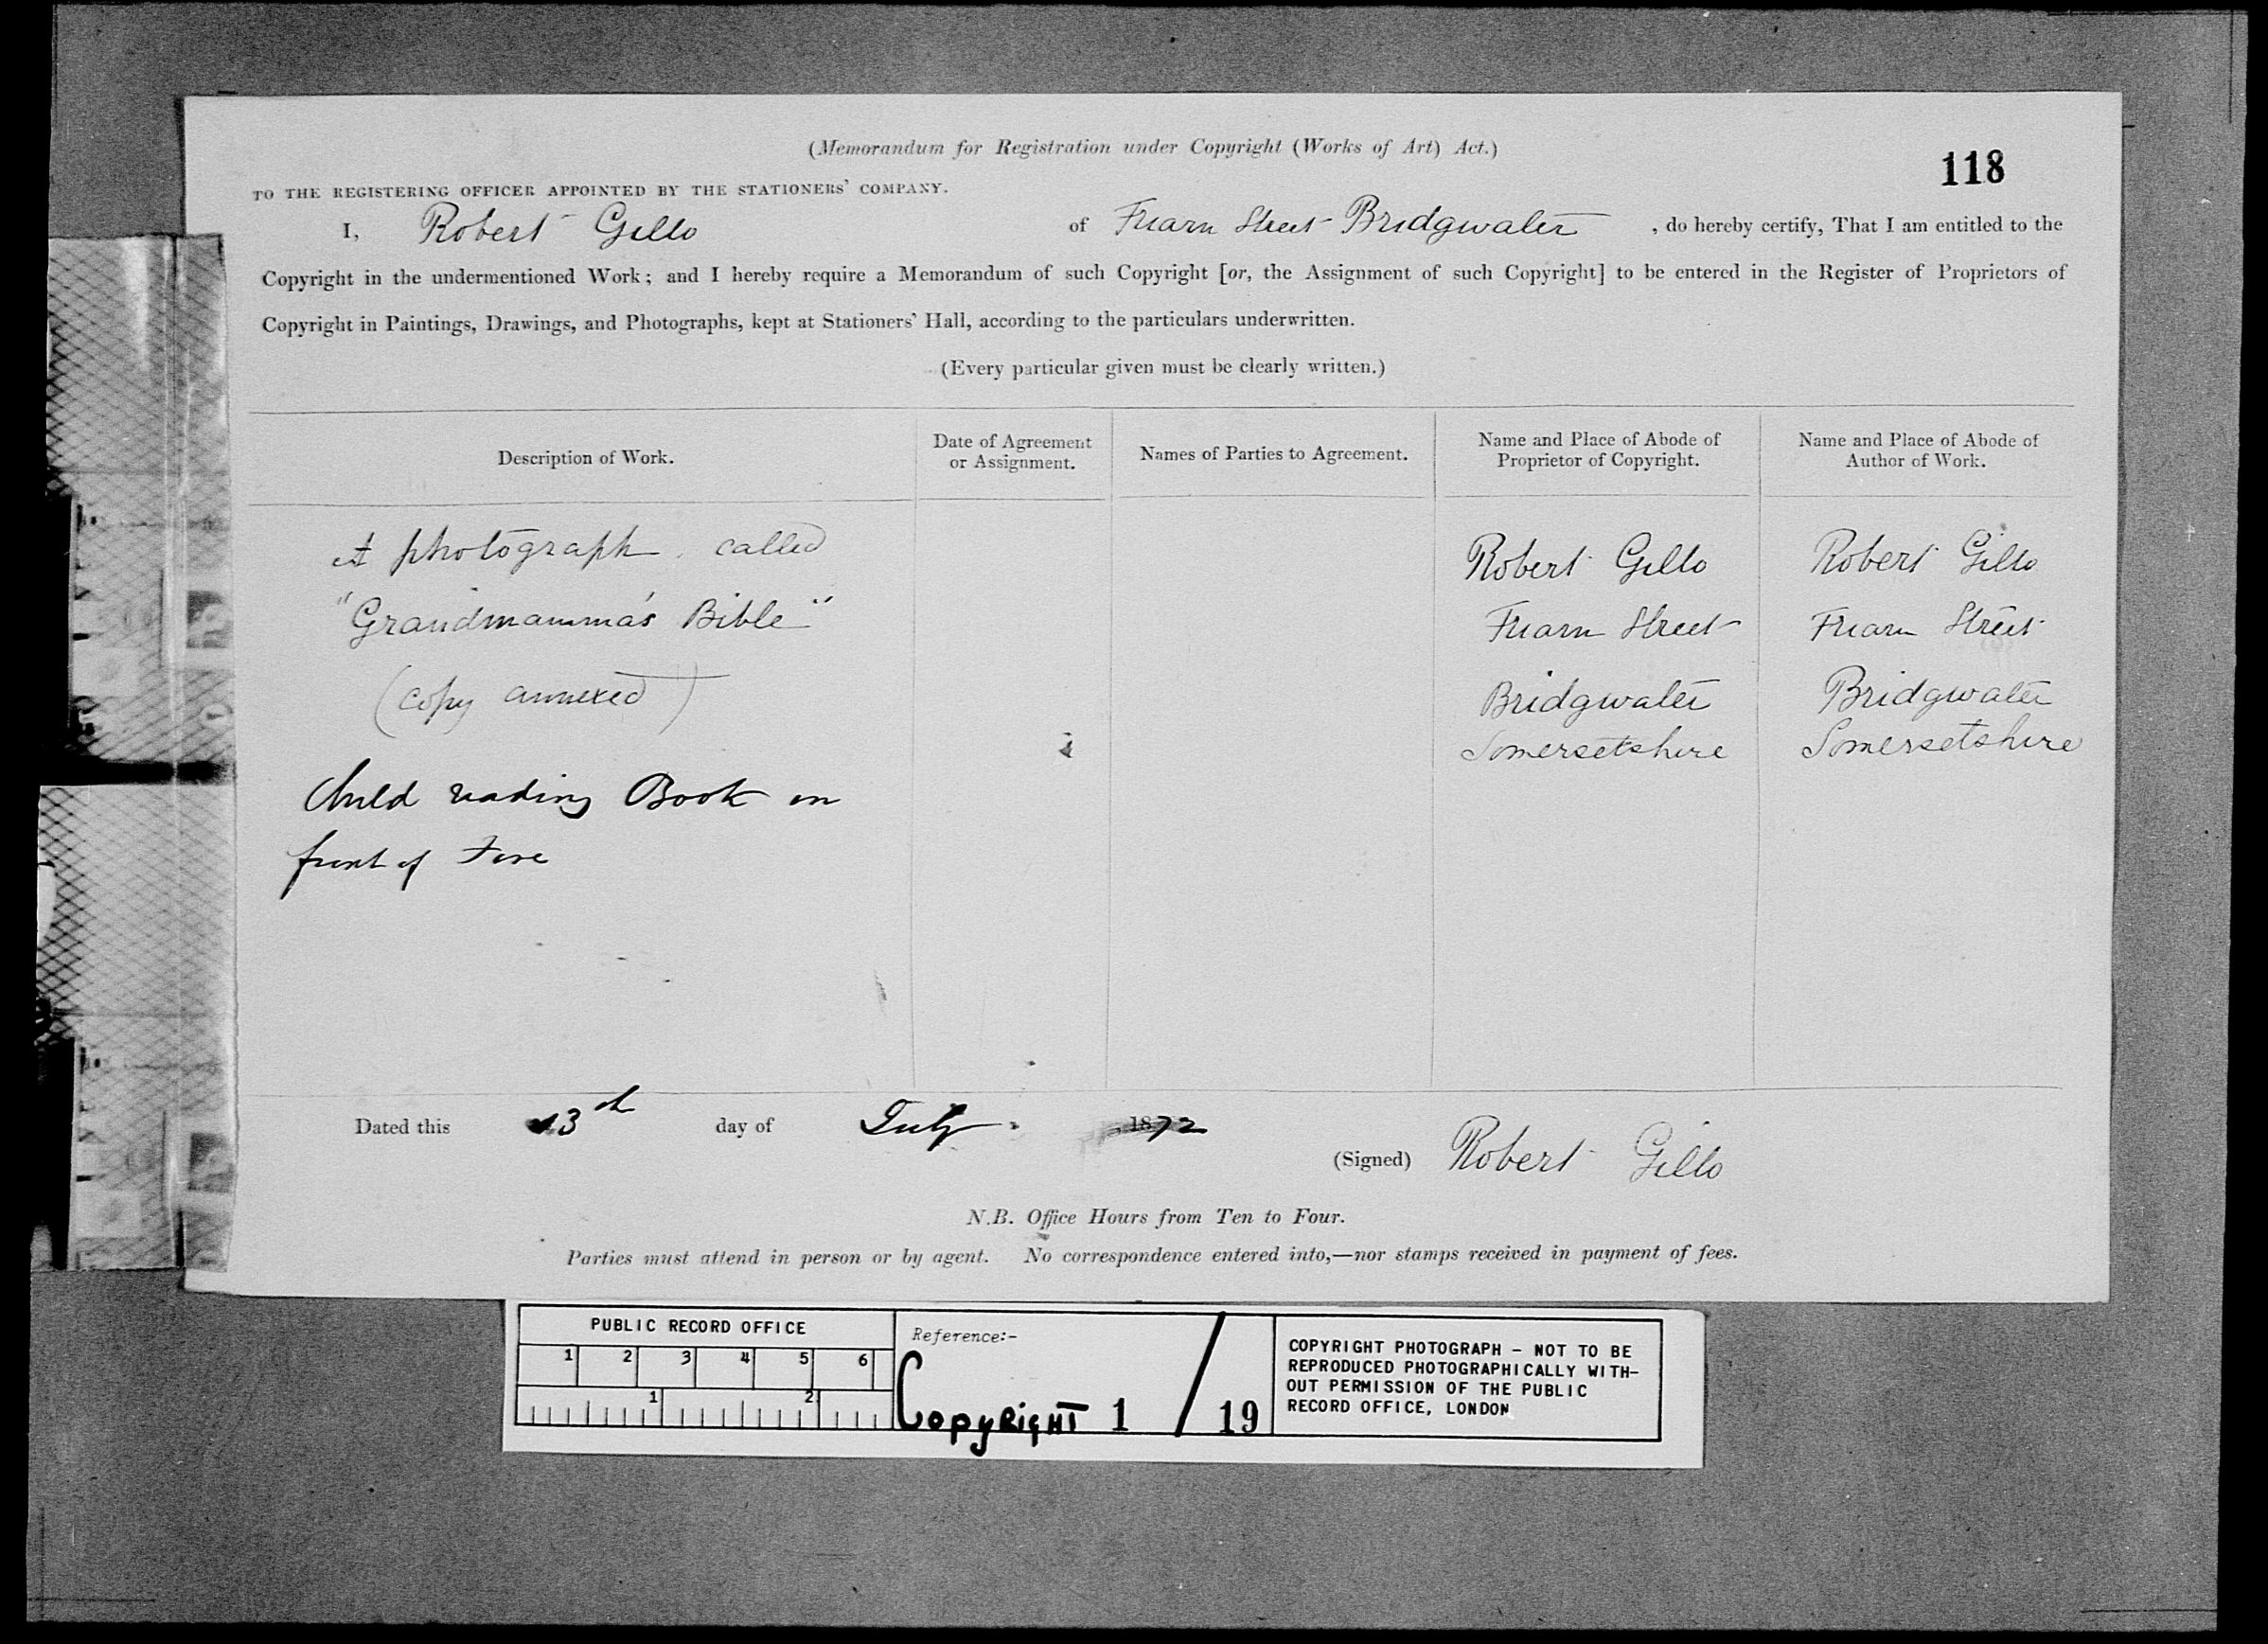 (Memorandum for Registration under Copyright (Works of Art) Act.)
118
TO THE REGISTERING OFFICER APPOINTED BY THE STATIONERS' COMPANY.
I, Robert Gillo of Friarn Street Bridgwater, do hereby certify, That I am entitled to the
Copyright in the undermentioned Work; and I hereby require a Memorandum of such Copyright [or, the Assignment of such Copyright] to be entered in the Register of Proprietors of
Copyright in Paintings, Drawings, and Photographs, kept at Stationers' Hall, according to the particulars underwritten.
(Every particular given must be clearly written.)
Description of Work.
Date of Agreement
or Assignment.
Names of Parties to Agreement.
Name and Place of Abode of
Proprietor of Copyright.
Name and Place of Abode of
Author of Work.
A photograph called
"Grandmamma's Bible"
(copy annexed)
Child reading Book in
front of Fire
Robert Gillo
Friarn Street
Bridgwater
Somersetshire
Robert Gillo
Friarn Street
Bridgwater
Somersetshire
Dated this 13th day of July 1872
(Signed) Robert Gillo
N.B. Office Hours from Ten to Four.
Parties must attend in person or by agent. No correspondence entered into,—nor stamps received in payment of fees.
PUBLIC RECORD OFFICE
1 2 3 4 5 6
1 2
Reference:-
Copyright 1 / 19
COPYRIGHT PHOTOGRAPH - NOT TO BE
REPRODUCED PHOTOGRAPHICALLY WITH-
OUT PERMISSION OF THE PUBLIC
RECORD OFFICE, LONDON